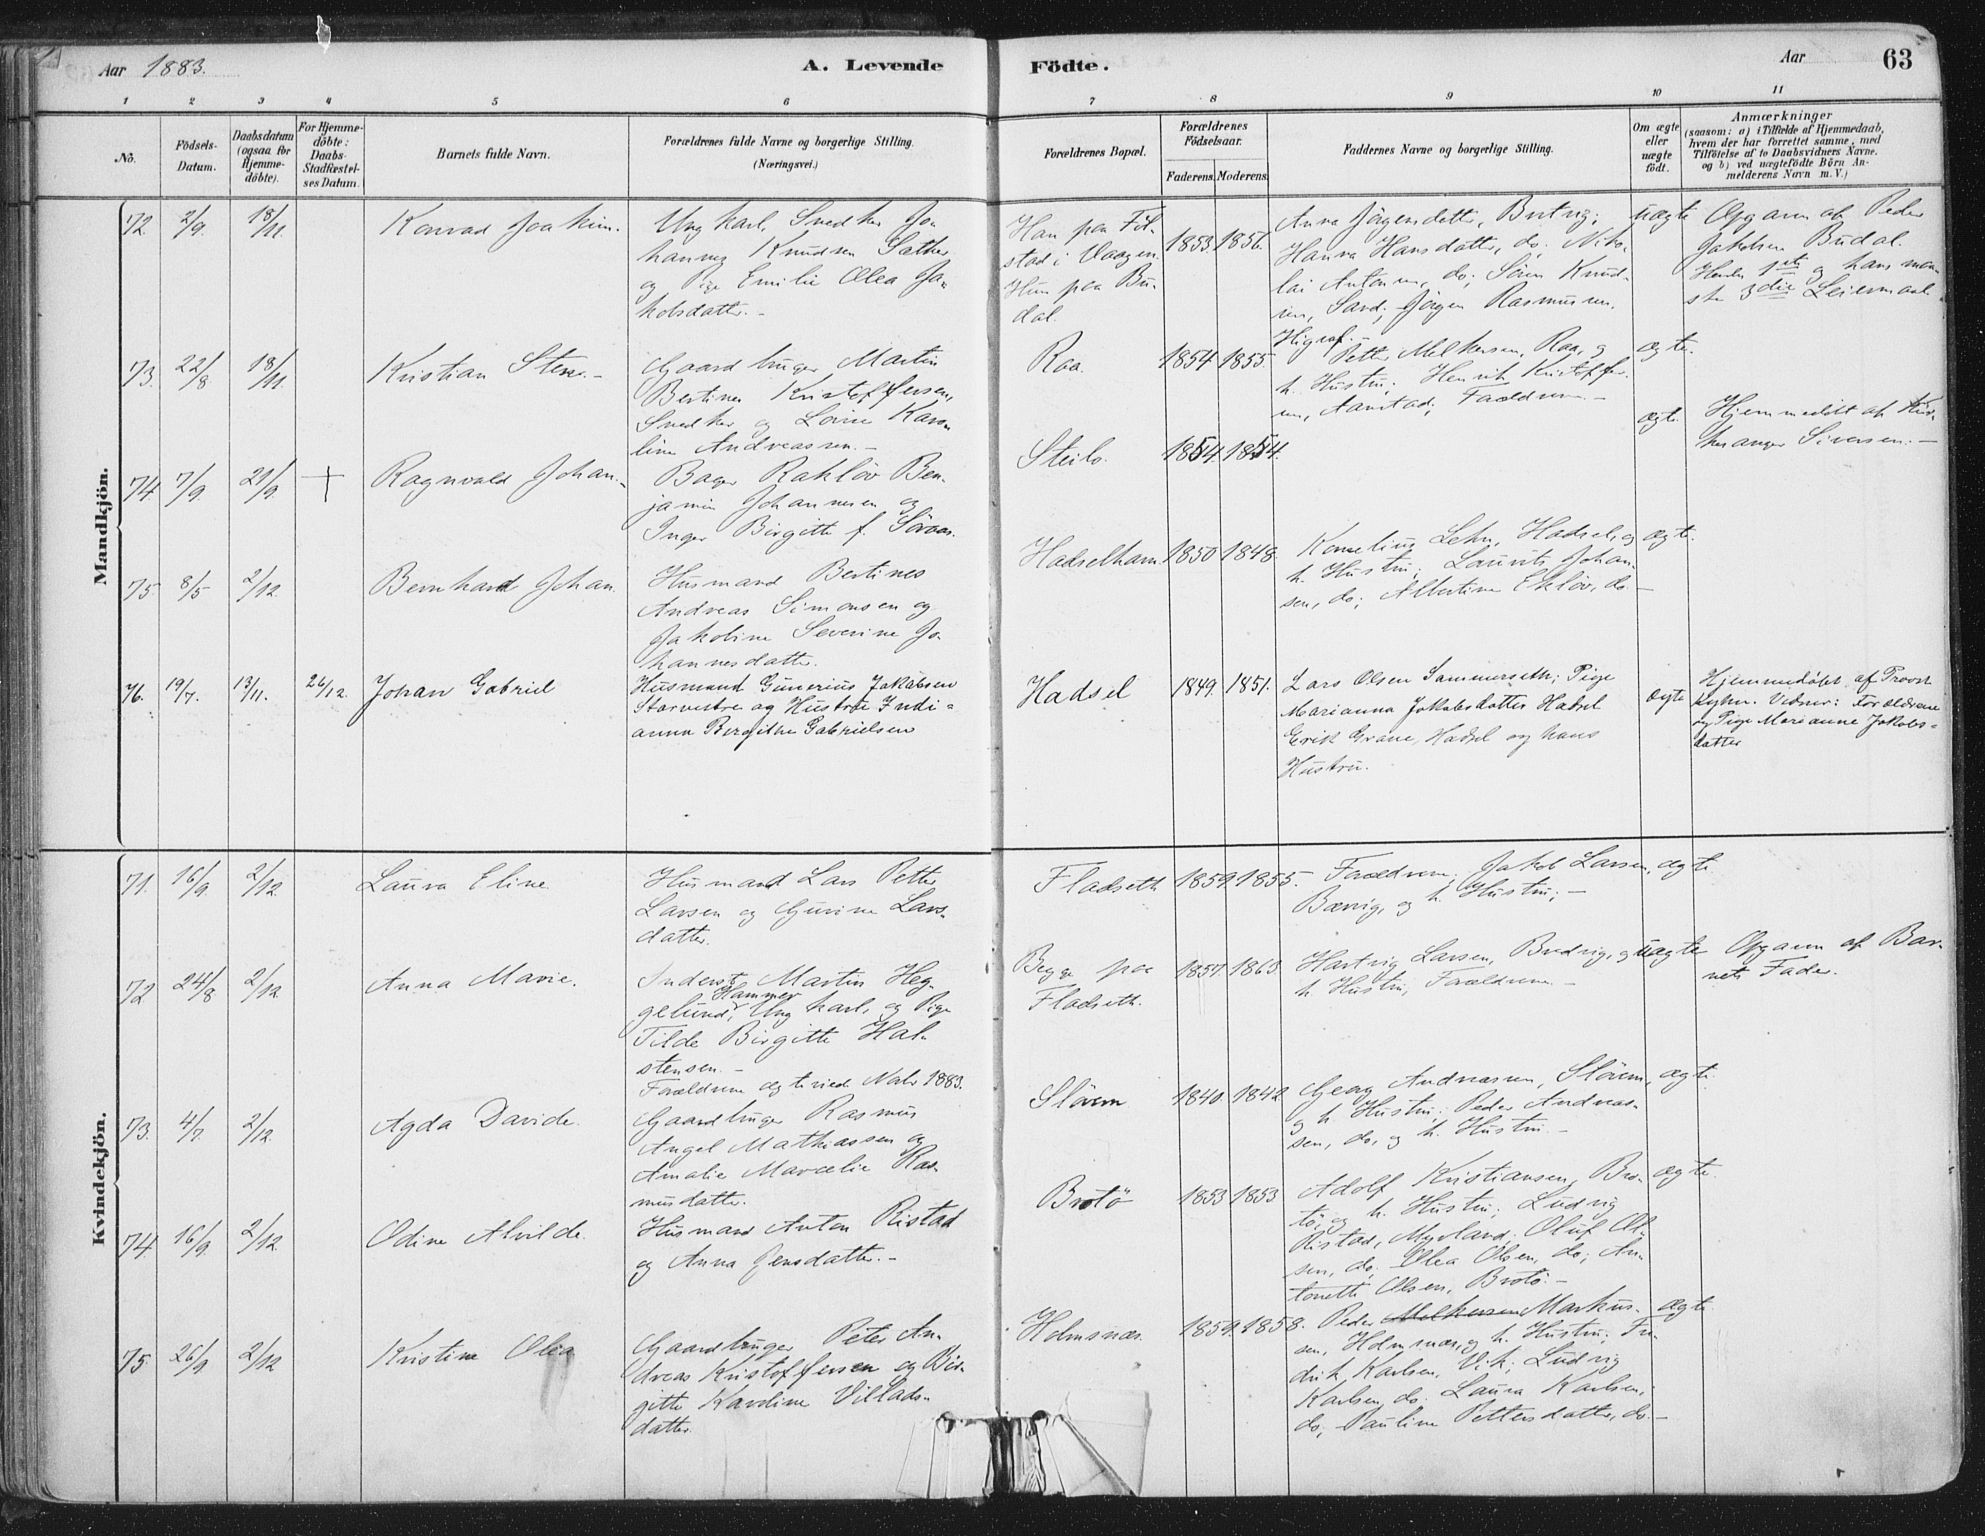 Aar 1883.
A. Levende
Födte.
Aar
63
1
2
3
4
5
6
7
8
9
10
11
No.
Födsels-
Datum.
Daabsdatum
(ogsaa for
Hjemme-
döbte).
For Hjemme-
döbte:
Daabs-
Stadfæstel-
ses Datum.
Barnets fulde Navn.
Forældrenes fulde Navne og borgerlige Stilling.
(Næringsvei.)
Forældrenes Bopæl.
Forældrenes
Födselsaar.
Faderens.
Moderens.
Faddernes Navne og borgerlige Stilling.
Om ægte
eller
uægte
födt.
Anmærkninger
(saasom: a) i Tilfælde af Hjemmedaab,
hvem der har forrettet samme, med
Tilföielse af to Daabsvidners Navne.
og b) ved uægtefödte Börn An-
melderens Navn m. V.)
Mandkjön.
72. 2/9. 18/11. Konrad Joakim.
Ungkarl, Snedker Jo-
hannes Knudsen Sæther
og Pige Emilie Olea Ja-
kobsdatter. -
Han paa Fil-
stad i Vaagen.
Hun paa Bu-
dal.
1853. 1856.
Anna Jörgensdatter,
Hanna Hansdatter, do; Niko-
lai Antonsen, do; Sören Knud-
sen, Sand; Jörgen Rasmussen,
uægte
Opgaven af Peder
Jakobsen Budal.
Hendes 1ste og hans
3die Leiermaal
73. 22/8 18/11. Kristian Steen. -
Gaardbruger Martin
Bertines Kristoffersen,
Snedker og Lovise Karo-
line Andreassen. -
Raa. 1854 1855.
Petter Melkersen, Raa, og
h. Hustru; Henrik Kristoffer-
sen, Aanstad; Forældrene -
ægte.
74 7/9. 21/9. + Ragnvald Johan. -
Bager Rakløv Ben-
jamin Johannesen og
Inger Birgitte f. Søraas.
Steilo. 1854. 1854.
ægte.
Hjemmedöbt af Kir-
kesanger Siversen. -
75. 8/5 2/12. Bernhard Johan
Husmand Bertines
Andreas Simonsen og
Jakobine Severine Jo-
hannesdatter.
Hadselhavn. 1850 1848.
Kornelius Lehn, Hadsel, og
h. Hustru; Laurits Johan-
sen, do; Albertine Ekløv, do. -
ægte.
76. 19/7. 13/11. 26/12. Johan Gabriel
Husmand Gunerius Jakobsen
Storvestre og Hustru Indi-
anna Bergithe Gabrielsen
Hadsel 1849. 1851.
Lars Olsen Sammerseth; Pige
Marianna Jakobsdatter Hadsel
Erik Grane, Hadsel og hans
Hustru.
ægte
Hjemmedøbt af Provst
Vidner: Forældrene
og Pige Marianne Jakobs-
datter
Kvindekjön.
71. 16/9. 2/12. Laura Eline
Husmand Lars Petter
Larsen og Gurine Lars-
datter.
Fladseth 1859 1855.
Forældrene; Jakob Larsen,
Børvig, og h. Hustru; -
ægte
72 24/8 2/12. Anna Marie.
Inderst Martin Heg-
Hammer
gelund, Ungkarl, og Pige
Tilde Birgitte Hal-
stensen. -
Forældrene ægteviede Novbr 1883.
Begge paa
Fladseth.
1857. 1863.
Hartvig Larsen, Bredvig, og
h. Hustru; Forældrene. -
uægte
Opgaven af Bar-
nets Fader.
73. 4/7. 2/12. Agda Davide.
Gaardbruger Rasmus
Angel Mathiassen og
Amalie Marcelie Ras-
musdatter.
Slåvem 1840 1842
Georg Andreassen, Slåvem,
og h. Hustru; Peder Andreas-
sen, do, og h. Hustru. -
ægte.
74 16/9. 2/12. Odine Alvilde.
Husmand Anton Ristad
og Anna Jensdatter. -
Brotö 1853 1853
Adolf Kristiansen, Bro-
tö, og h. Hustru; Ludvig
Ristad, Myrland; Oluf Ol-
sen, do; Olea Olsen, do; An-
tonette Olsen, Brotö. -
ægte.
75. 26/9 2/12 Kristine Olea
Gaardbruger Peter An-
dreas Kristoffersen og Bir-
gitte Karoline Villads-
datter.
Holmsnæs. 1859. 1858.
Peder Melkersen Markus-
sen, Holmsnæs, og h. Hustru; Fre-
drik Karlsen, Vik; Ludvig
Karlsen, do; Laura Karlsen,
do; Pauline Pettersdatter, do. -
ægte